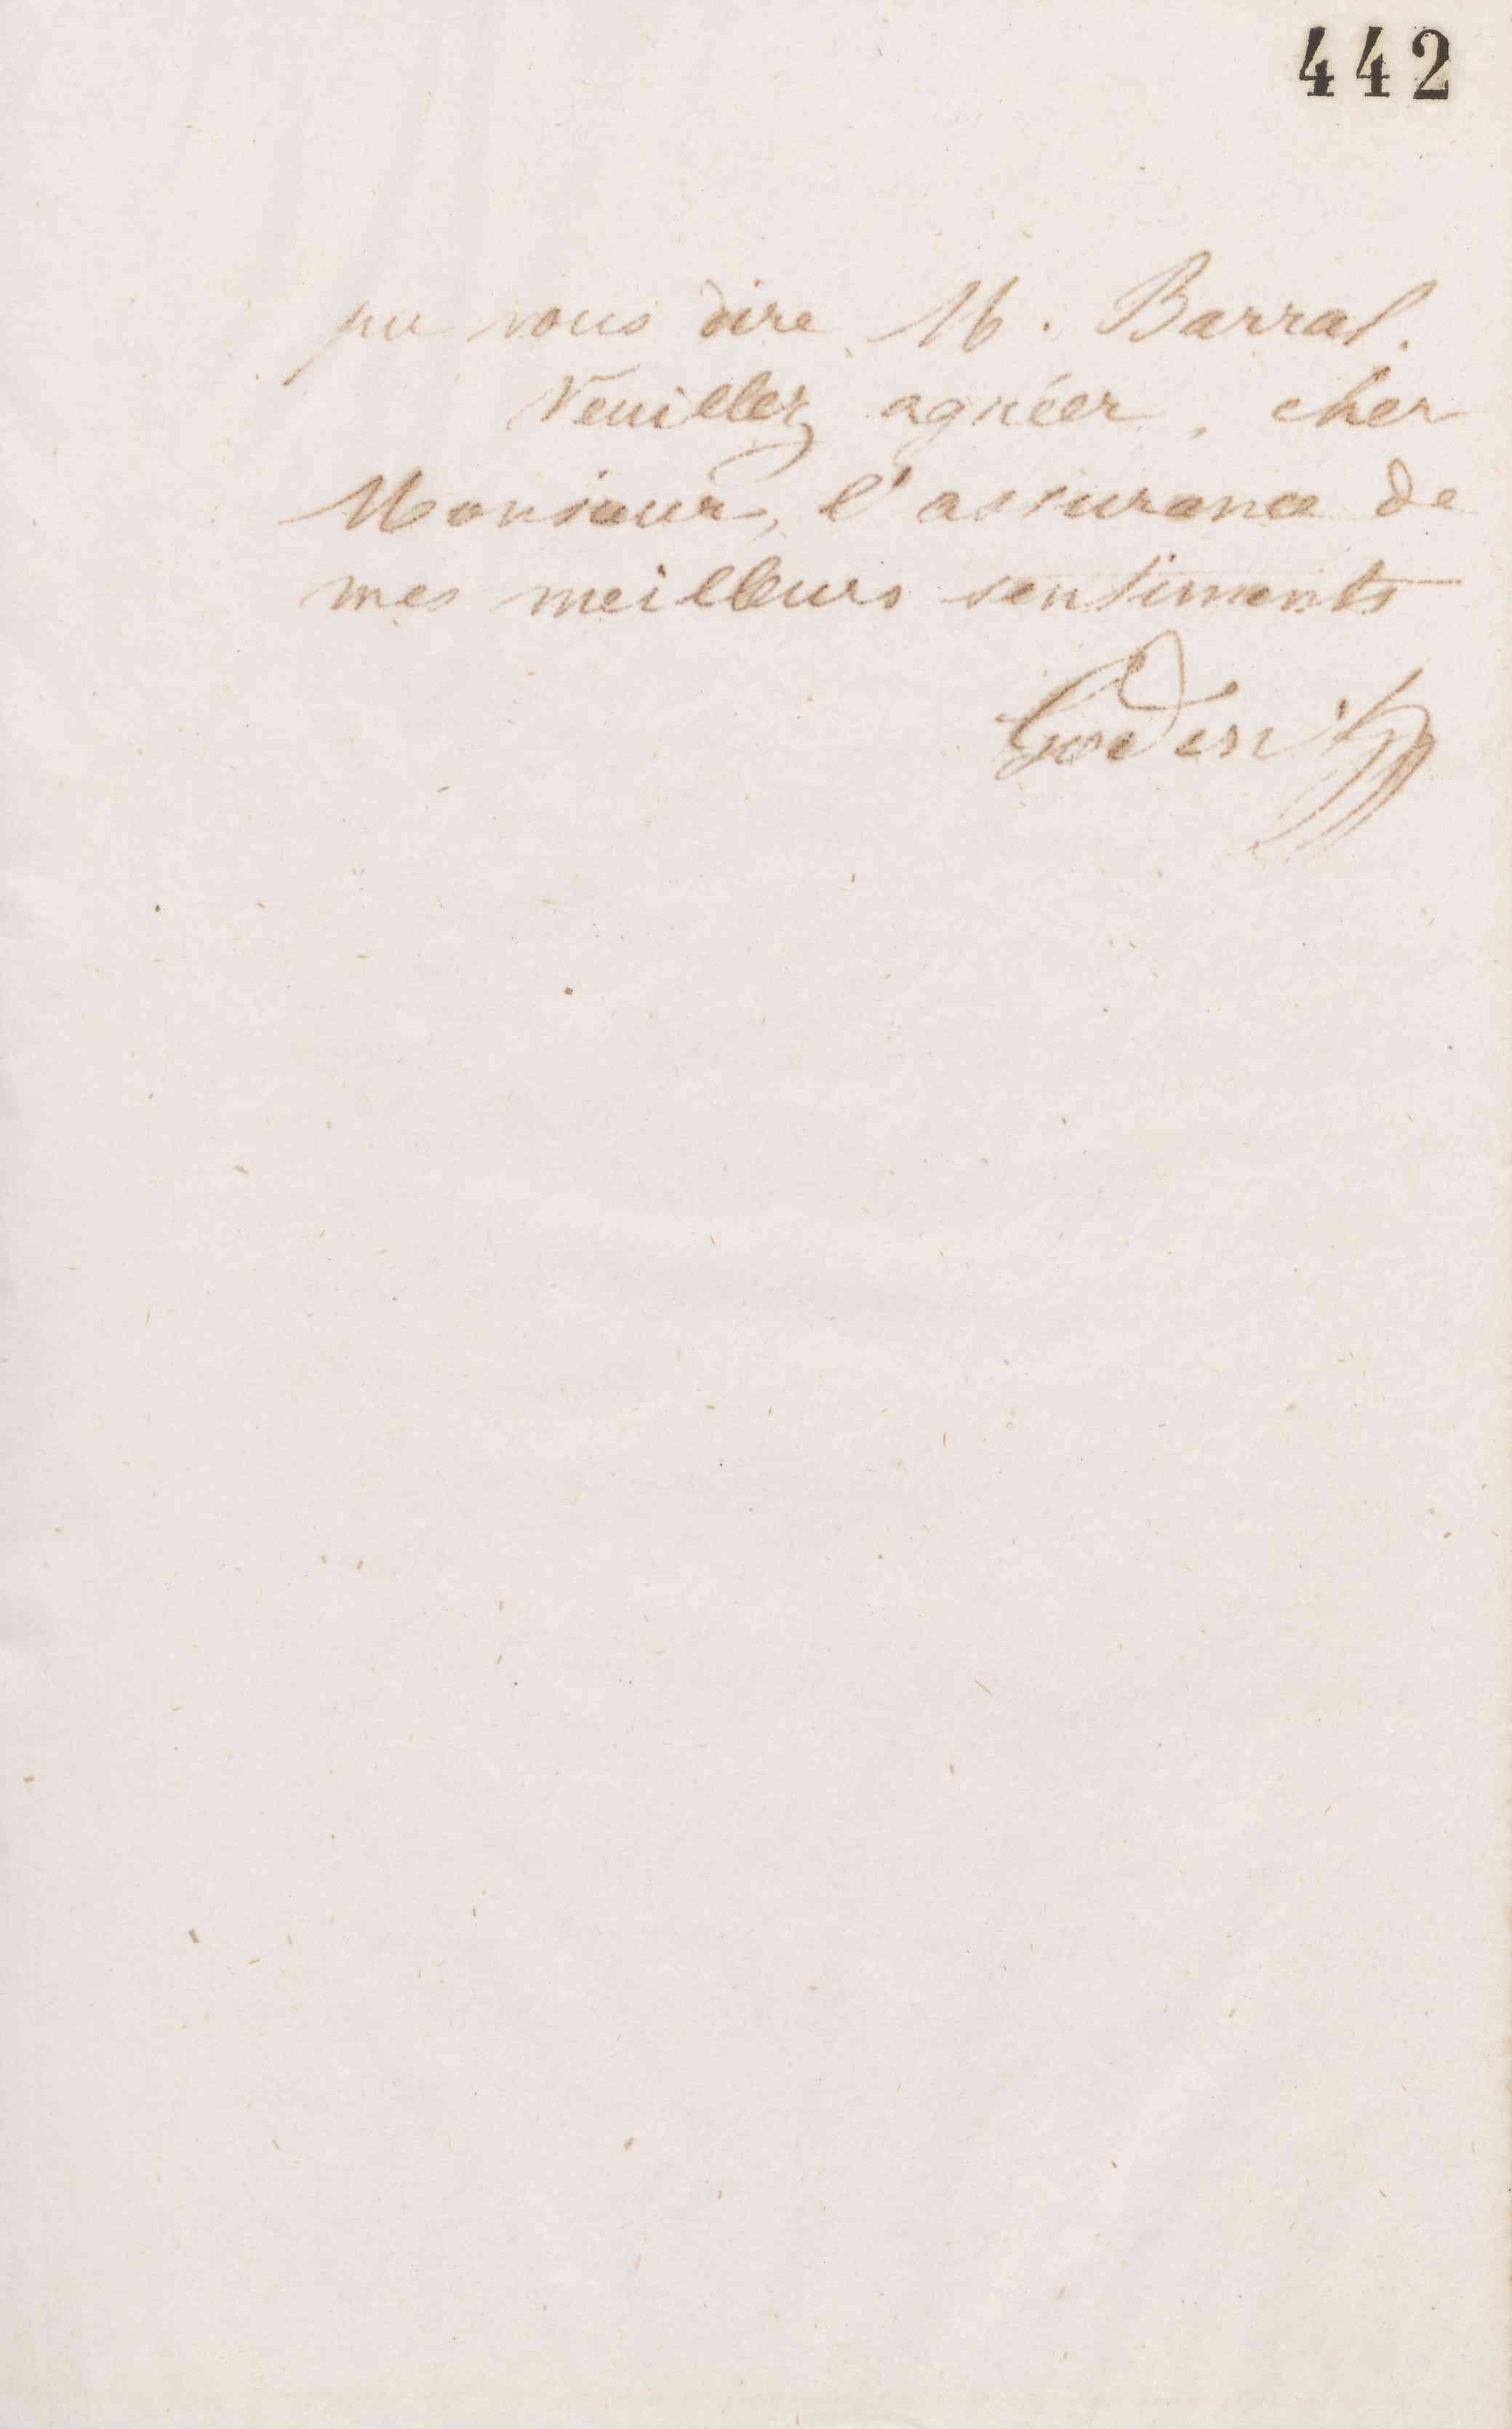 442
pu vous dire M. Barral.
Veuillez agréer, cher
Monsieur, l'assurance de
mes meilleurs sentiments
Godin